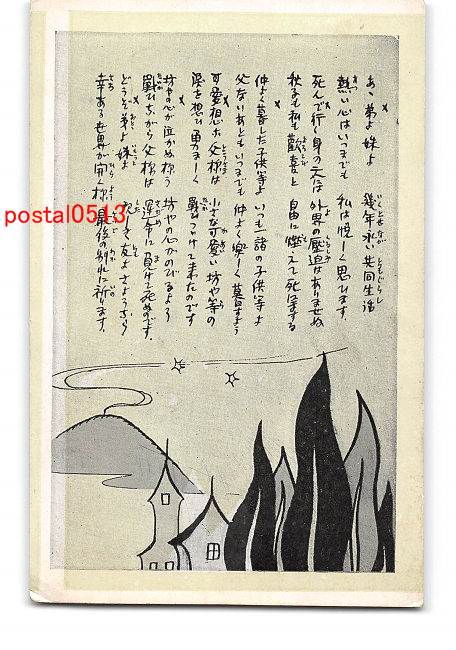 あゝ弟よ妹よ 幾年永い共同生活
熱い心はいつまでも 私は悦しく思ひます。
死んで行く身の天には 外界の壓迫はありませぬ
秋子も私も歓喜と 自由に燃えて死にまする
仲よく暮した子供等よ いつも諸の子供等よ
父ないあともいつまでも 仲よく樂しく暮すよう
可愛想な父様は 小さな可愛い坊や等の
深き想ひ勇ましく 戰ひつゞけて来たのです
坊やの心が泣かぬ様う 坊やの心がのびるよう
戰ひながら父様は 運命に負けて死ぬのです。
どうぞ弟よ妹よ 親しき友よさようなら
幸ある世界が開く様 最後の別れに祈ります。
postal0513